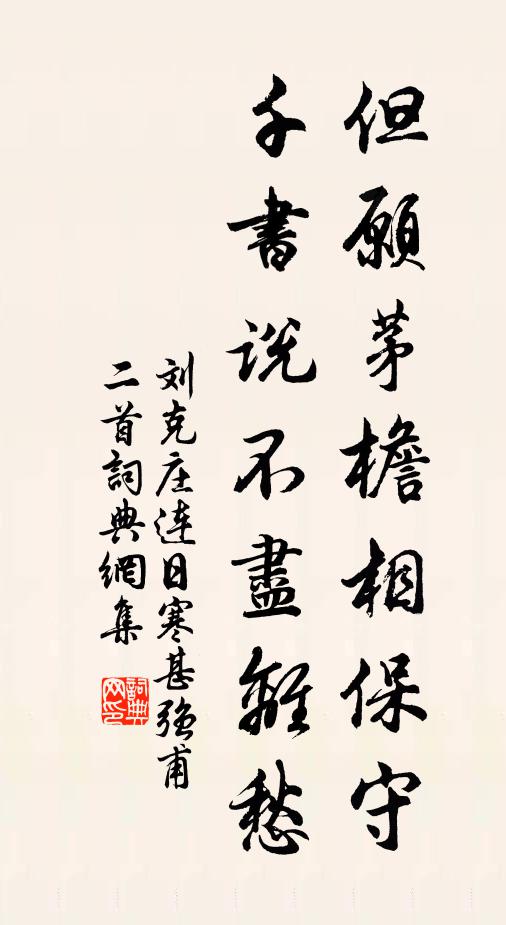 但願茅檐相保守
千書説不盡離愁
刘克庄連日寒甚强甫
二首詞典網集
詞典
网印